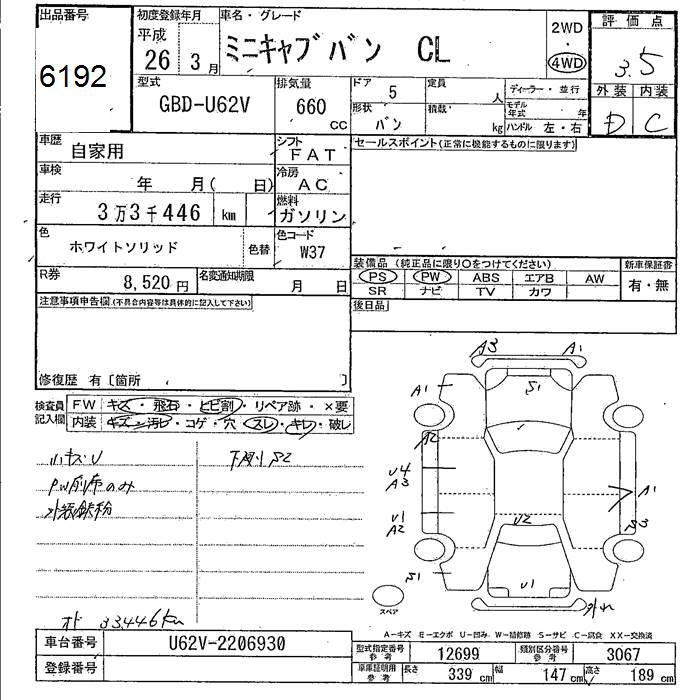 出品番号
6192
初度登録年月
平成
26 3月
車名・グレード
ミニキャブバン CL
2WD
・
4WD
評価点
3.5
外装 内装
D C
型式
GBD-U62V
排気量
660 CC
ドア 5
定員 人
ディーラー・並行
形状 バン
積載 kg
モデル年式 年
ハンドル 左・右
車歴
自家用
シフト
FAT
セールスポイント(正常に機能するものに限ります)
車検
年 月( 日)
冷房
AC
走行
3万3千446 km
燃料
ガソリン
色
ホワイトソリッド
色替
色コード
W37
装備品 (純正品に限り○をつけてください)
新車保証書
PS PW ABS エアB AW
SR ナビ TV カワ
有・無
R券
8,520円
名変通知期限
月 日
後日品
注意事項申告欄(不具合内容等は具体的に記入して下さい)
修復歴 有〔箇所 〕
検査員
記入欄
FW キズ・飛石・ヒビ割・リペア跡・×要
内装 キズ・汚レ・コゲ・穴・スレ・キレ・破レ
小キズU
下廻りS2
PW前席のみ
外装鉄粉
オド 33,446km
A3 A1
A1 S1
A2
U4
A3
A1
U1
A2
U2
S3
S1
U1
外れ
スペア
A-キズ E-エクボ U-凹み W-補修跡 S-サビ C-腐食 XX-交換済
車台番号
U62V-2206930
登録番号
型式指定番号
参考
12699
類別区分番号
参考
3067
車庫証明用
参考
長さ 339 cm
幅 147 cm
高さ 189 cm